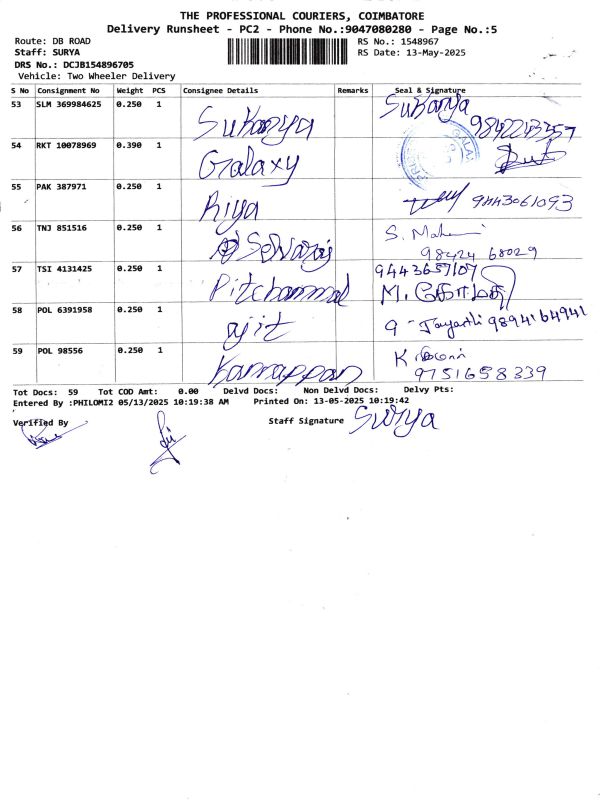 THE PROFESSIONAL COURIERS, COIMBATORE
Delivery Runsheet - PC2 - Phone No.:9047080280 - Page No.:5
Route: DB ROAD RS No.: 1548967
Staff: SURYA RS Date: 13-May-2025
DRS No.: DCJB154896705
Vehicle: Two Wheeler Delivery
S No Consignment No Weight PCS Consignee Details Remarks Seal & Signature
53 SLM 369984625 0.250 1 Sukanya Sukanya 9842243357
54 RKT 10078969 0.390 1 Galaxy
55 PAK 387971 0.250 1 Riya 9443061093
56 TNJ 851516 0.250 1 Selvaraj S. 98424 68029
57 TSI 4131425 0.250 1 Pitchammal 9443657107 M. கோமதி
58 POL 6391958 0.250 1 ajit 9894164941
59 POL 98556 0.250 1 Kanappan K 9751658339
Tot Docs: 59 Tot COD Amt: 0.00 Delvd Docs: Non Delvd Docs: Delvy Pts:
Entered By :PHILOMI2 05/13/2025 10:19:38 AM Printed On: 13-05-2025 10:19:42
Verified By Staff Signature Surya